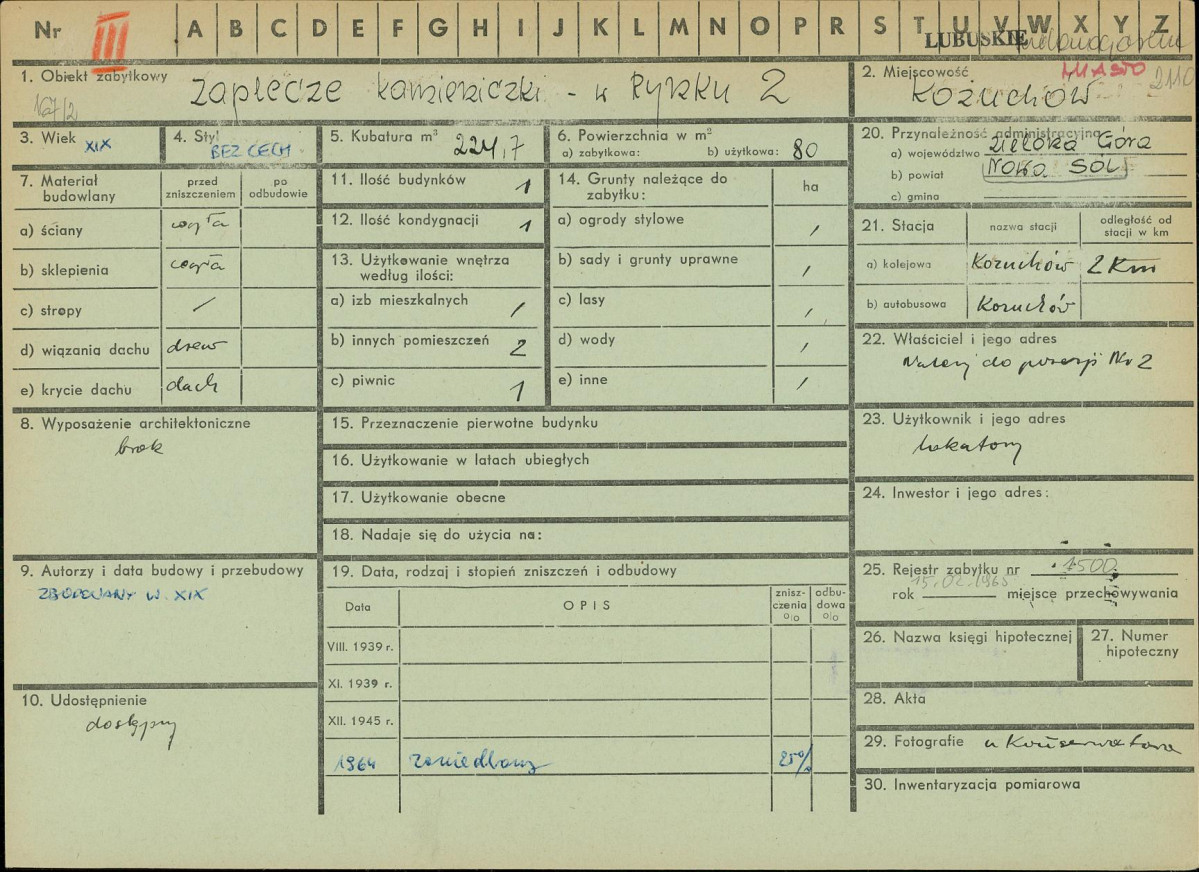 Nr III A B C D E F G H I J K L M N O P R S T U V W X Y Z
LUBUSKIE
1. Obiekt zabytkowy
Zaplecze kamieniczki - w Rynku 2
167/2
2. Miejscowość
MIASTO
Kożuchów
3. Wiek XIX
4. Styl BEZ CECH
5. Kubatura m³ 224,7
6. Powierzchnia w m²
a) zabytkowa: b) użytkowa: 80
20. Przynależność administracyjna
a) województwo Zielona Góra
b) powiat Nowa Sól
c) gmina
7. Materiał budowlany
przed zniszczeniem
po odbudowie
a) ściany cegła
b) sklepienia cegła
c) stropy /
d) wiązania dachu drew
e) krycie dachu dach
11. Ilość budynków 1
12. Ilość kondygnacji 1
13. Użytkowanie wnętrza według ilości:
a) izb mieszkalnych /
b) innych pomieszczeń 2
c) piwnic 1
14. Grunty należące do zabytku:
ha
a) ogrody stylowe /
b) sady i grunty uprawne /
c) lasy /
d) wody /
e) inne /
21. Stacja
nazwa stacji
odległość od stacji w km
a) kolejowa Kożuchów 2 Km
b) autobusowa Kożuchów
22. Właściciel i jego adres
Należy do posesji Nr 2
8. Wyposażenie architektoniczne
brak
15. Przeznaczenie pierwotne budynku
16. Użytkowanie w latach ubiegłych
17. Użytkowanie obecne
18. Nadaje się do użycia na:
23. Użytkownik i jego adres
Lokatorzy
24. Inwestor i jego adres:
9. Autorzy i data budowy i przebudowy
ZBUDOWANY W XIX
19. Data, rodzaj i stopień zniszczeń i odbudowy
Data
OPIS
zniszczenia o|o
odbudowa o|o
VIII. 1939 r.
XI. 1939 r.
XII. 1945 r.
1964 zaniedbany 25%
25. Rejestr zabytku nr 1500
15.02.1965
rok miejsce przechowywania
26. Nazwa księgi hipotecznej
27. Numer hipoteczny
10. Udostępnienie
dostępny
28. Akta
29. Fotografie u Konserwatora
30. Inwentaryzacja pomiarowa